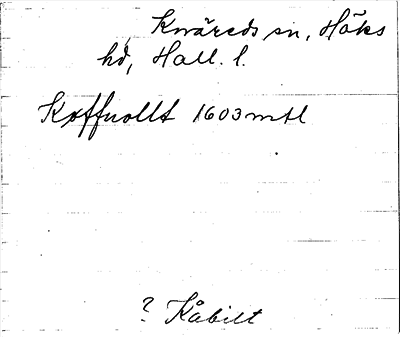 Knäreds sn, Höks
hd, Hall. l.
Koffuollt 1603 mtl
? Kåbilt